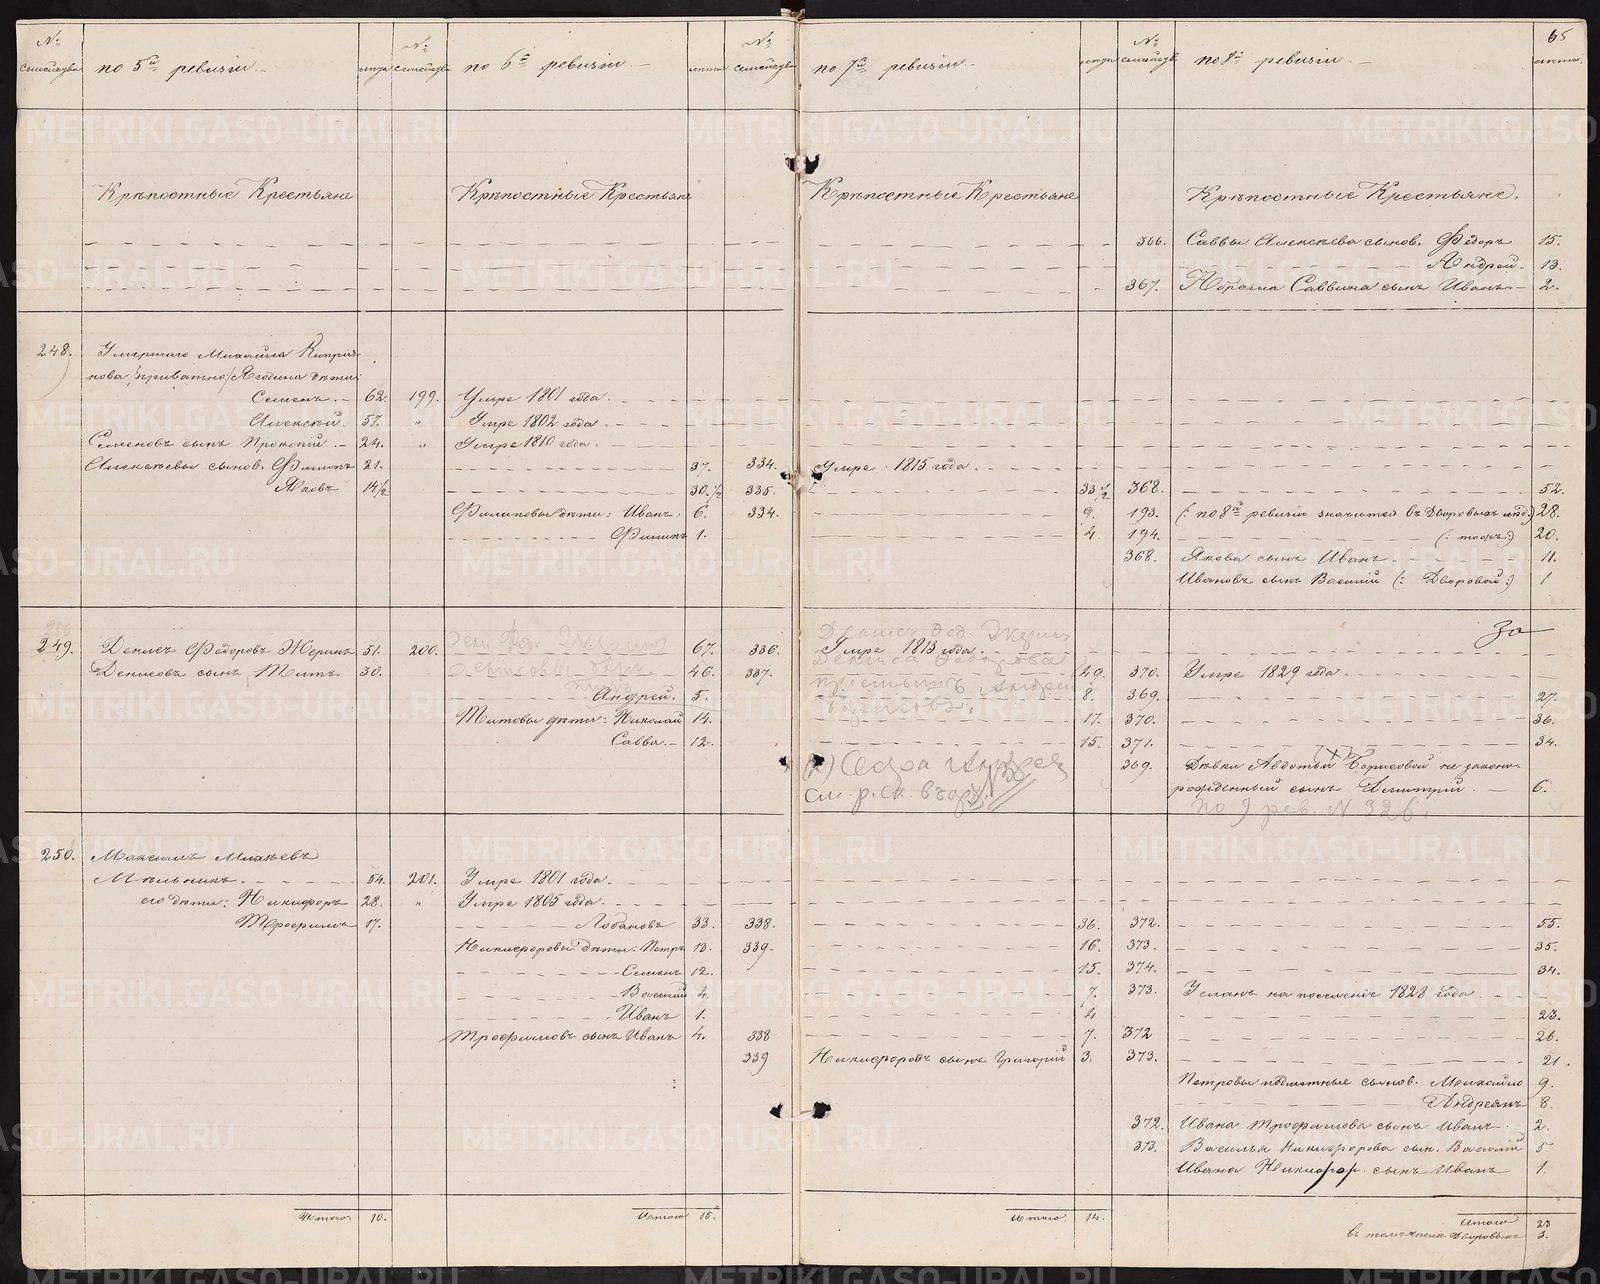 65
№ семейства по 5й ревизіи лѣта № семейства по 6й ревизіи лѣта № семейства по 7й ревизіи лѣта № семейства по 8й ревизіи лѣта
Крѣпостные Крестьяне Крѣпостные Крестьяне Крѣпостные Крестьяне Крѣпостные Крестьяне.
366. Саввы Алексѣева сынов. Ѳедоръ 15.
Андрей. 13.
367. Саввина сынъ Иванъ. 2.
248. Умершаго Михайла Кипрія-
нова дѣти:
Семенъ. 62. 199. Умре 1801 года.
Алексѣй. 57. " Умре 1802 года.
Семеновъ сынъ Прокопій 24. " Умре 1810 года.
Алексѣевы сынов. Филипъ 21. 37. 334. Умре 1815 года.
Яковъ 14½ 30.½ 335. 33½ 368. 52.
Филиповы дѣти: Иванъ. 6. 334. 9. 193. (: по 8й ревизіи значится въ Дворовыхъ люд.) 28.
Филипъ 1. 4 194. (: тоже:) 20.
368. Якова сынъ Иванъ. 11.
Ивановъ сынъ Василій (: Дворовой:) 1
249. Денисъ Ѳедоровъ Жеринъ 51. 200. 67. 336. Умре 1813 года.
Денисовъ сынъ Титъ 30. 46. 337. 49. 370. Умре 1829 года
Андрей. 5. 8. 369. 27.
Титовы дѣти: Николай 14. 17. 370. 36.
Савва. 12. 15. 371. 34.
369. Дѣвки Авдотьи Борисовой не законо-
рожденный сынъ Дмитрій. 6.
по 9 рев. № 326.
250. Максимъ Михѣевъ
Мѣльникъ. 54. 201. Умре 1801 года.
его дѣти: Никифоръ 28. " Умре 1805 года.
Трофимъ 17. Лобановъ 33. 338. 36. 372. 55.
Никифоровы дѣти: Петръ 13. 339. 16. 373. 35.
Семенъ 12. 15. 374. 34.
Василій 4. 7. 373. Усланъ на поселеніе 1828 года
Иванъ 1. 4 23.
Трофимовъ сынъ Иванъ 4. 338 7. 372 26.
339 Никифоровъ сынъ Григорій 3. 373. 21.
Петровы сынов. Михайло 9.
Андреянъ 8.
372. Ивана Трофимова сынъ Иванъ 2.
373. Василья Никифорова сын. Василій 5
Ивана Никифор. сынъ Иванъ 1.
Итого. 10. Итого 15. Итого. 14. Итого 23
въ томъ числѣ Дворовыхъ 3.
METRIKI.GASO-URAL.RU